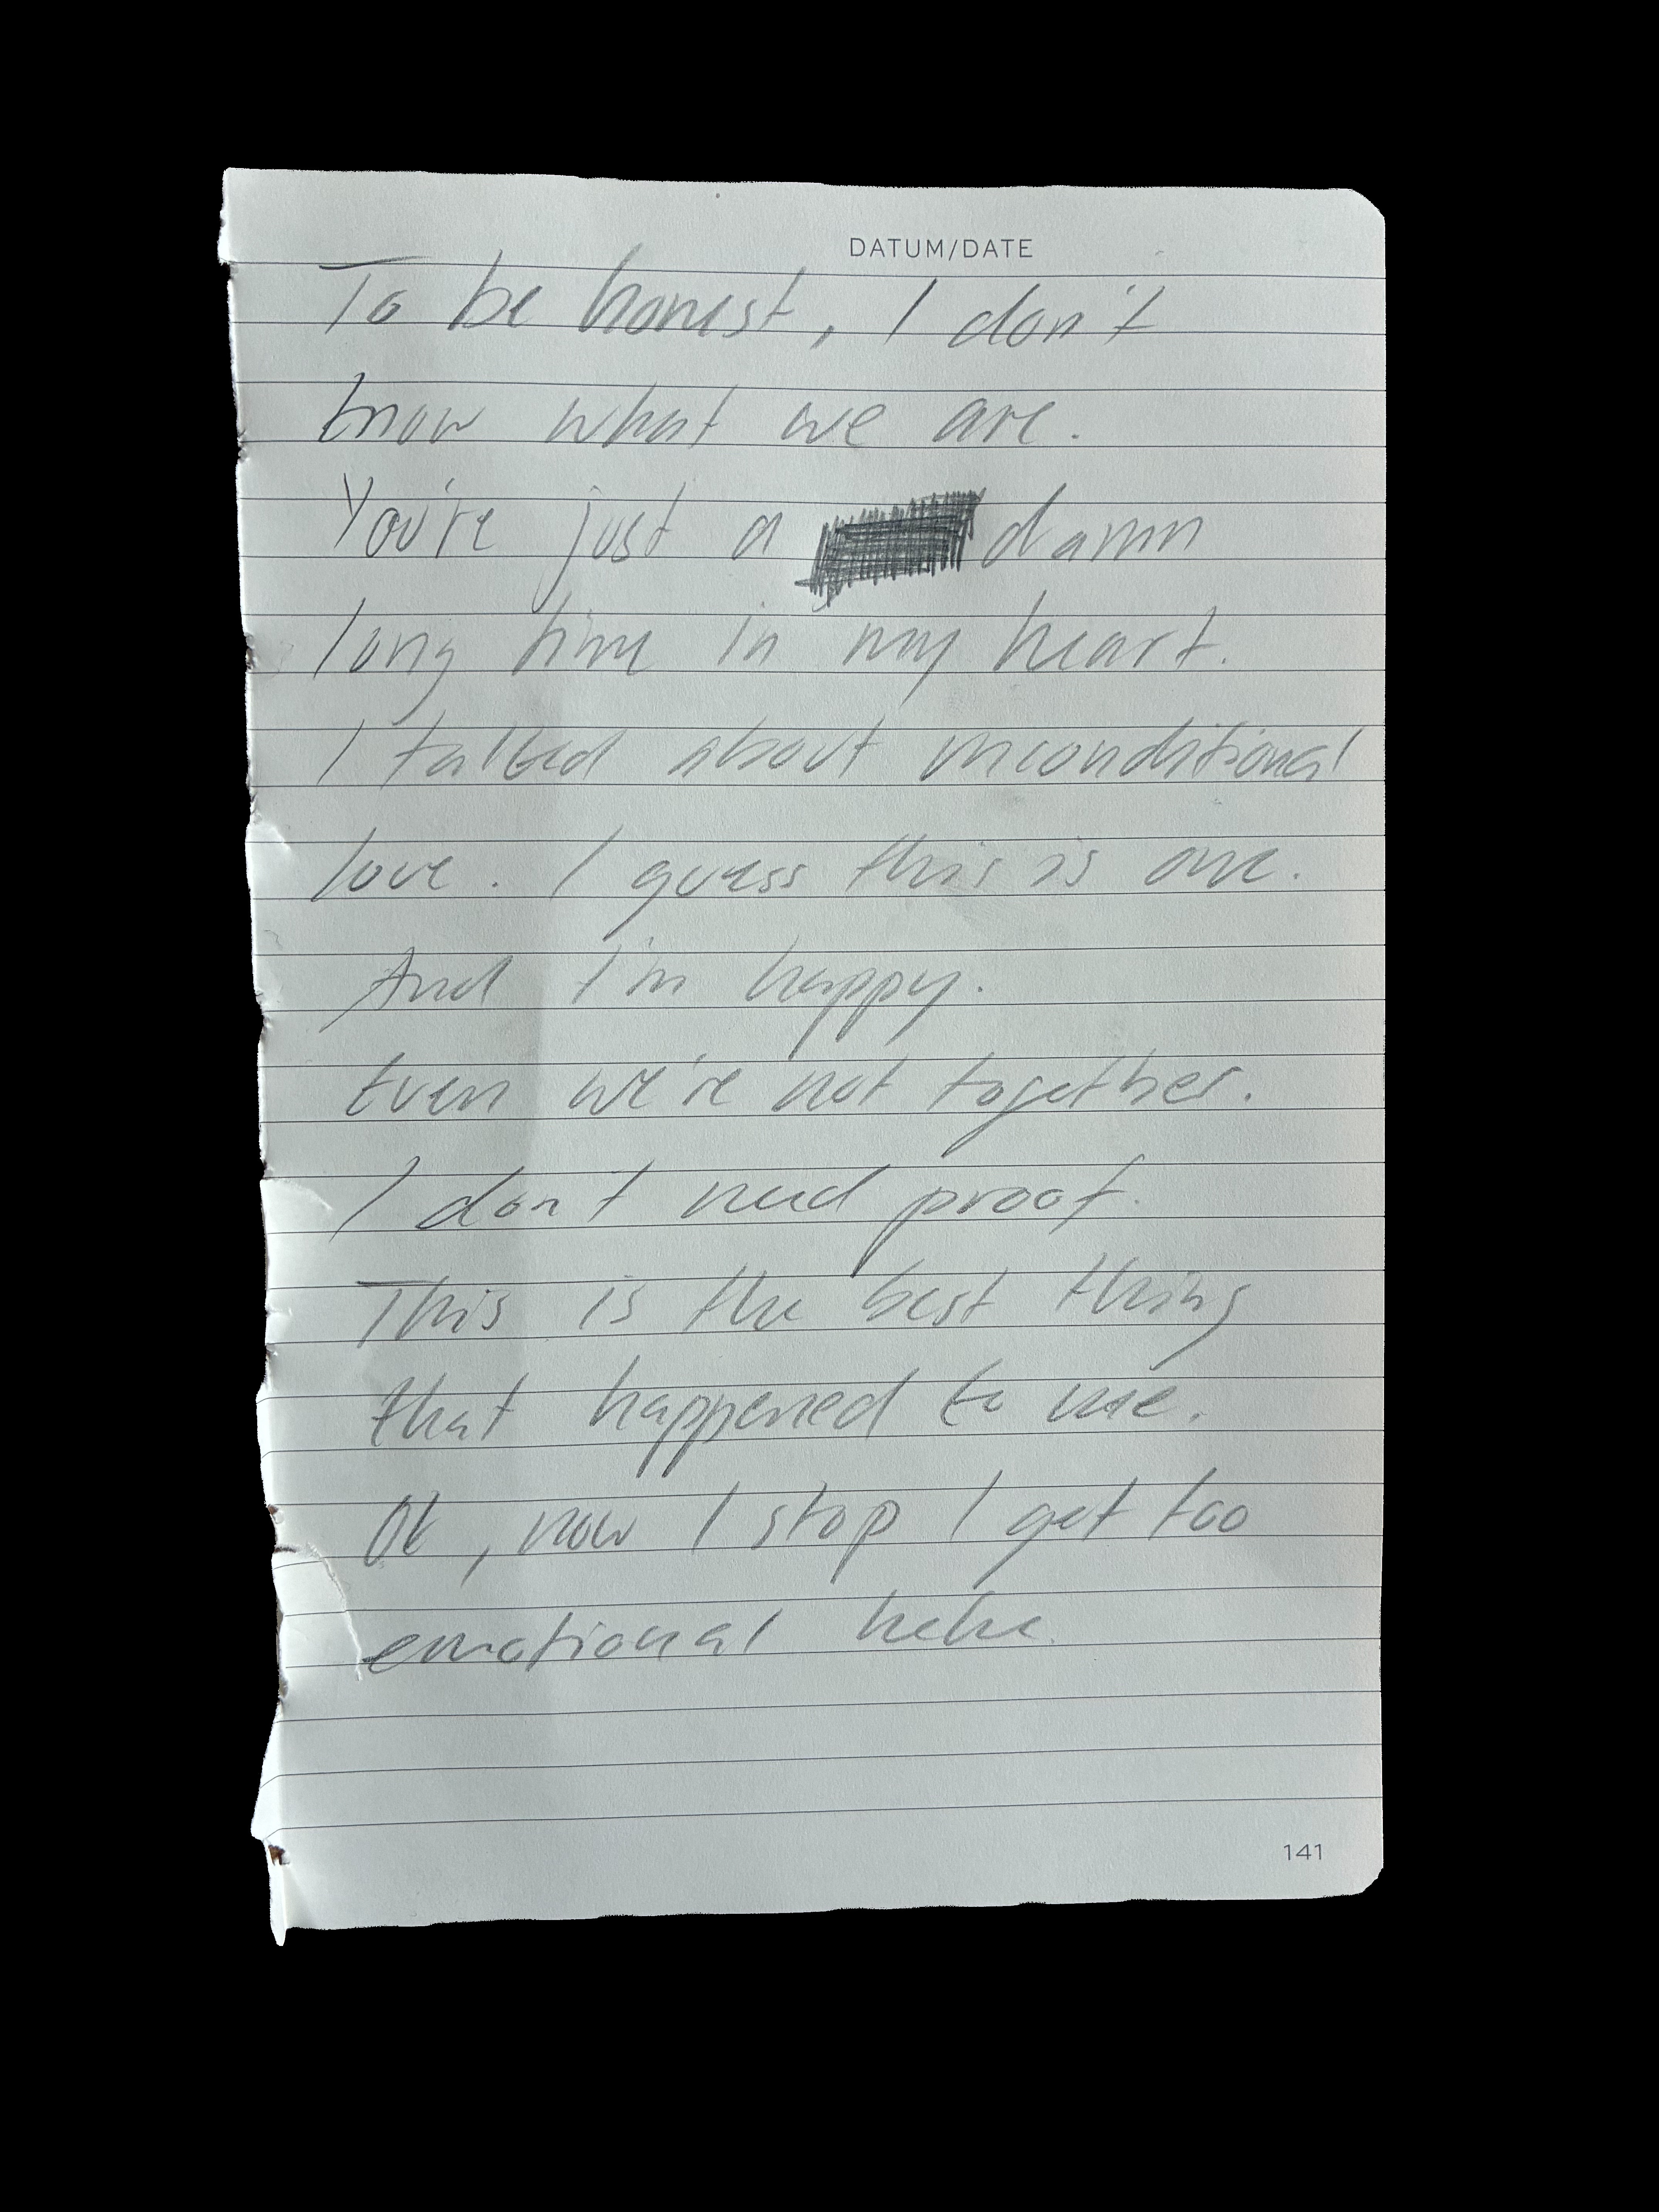 DATUM/DATE
To be honest, I don't
know what we are.
You're just a damn
long time in my heart.
I talked about unconditional
love. I guess this is one.
And I'm happy.
Even we're not together.
I don't need proof.
This is the best thing
that happened to me.
Ok, now I stop I get too
emotional hehe.
141